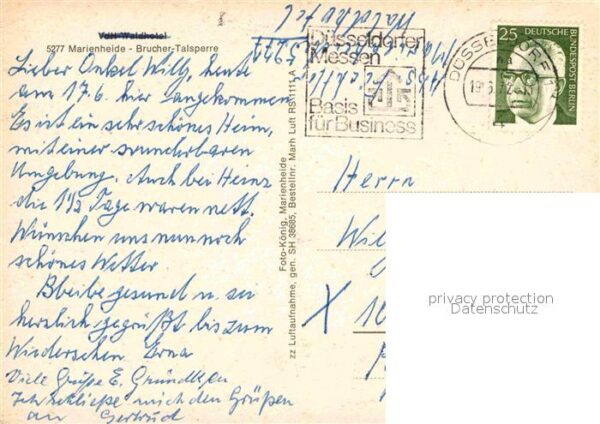 VdH Waldhotel
5277 Marienheide - Brucher-Talsperre
Lieber Onkel Willy, heute
am 17.6. hier angekommen
Es ist ein sehr schönes Heim,
mit einer wunderbaren
Umgebung. Auch bei Heinz
die 1½ Tage waren nett.
Wünschen uns nur noch
schönes Wetter.
Bleibe gesund u. sei
herzlich gegrüßt bis zum
Wiedersehen Erna
Viele Grüße E. Gründken
Ich schließe mich den Grüßen
an Gertrud
Foto-König, Marienheide
zz Luftaufnahme, gen. SH 38685, Bestellnr. Marh Luft RSV1111 A
Waldhotel
Düsseldorfer
Messen
Basis
für Business
DÜSSELDORF
25
DEUTSCHE
BUNDESPOST BERLIN
Herrn
Wil
X 10
privacy protection
Datenschutz